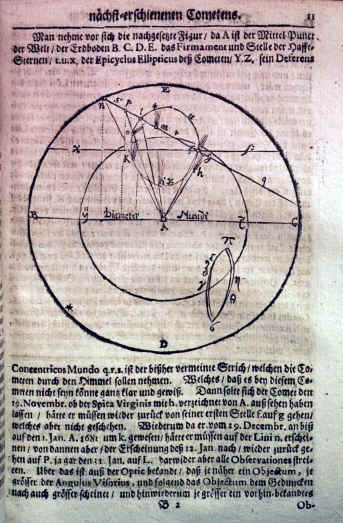 nächst-erschienenen Cometens. 11
Man nehme vor sich die nachgesetzte Figur/ da A ist der Mittel-Punct
der Welt/ der Erdboden B. C. D. E. das Firmament und Stelle der Haffte-
Sternen/ t.u.x, der Epicyclus Ellipticus deß Cometen/ Y.Z, sein Deferens
E
x
B
Diameter
A
Mundi
C
D
Concentricus Mundo q.r.s. ist der bißher vermeinte Strich/ welchen die Co-
meten durch den Himmel sollen nehmen. Welches/ daß es bey diesem Co-
meten nicht seyn könne gantz klar und gewiß. Dann solte sich der Comet den
19. Novembr. ob der Spica Virginis mit b. verzeichnet von A. auß sehen haben
lassen/ hätte er müssen wieder zurück von seiner ersten Stelle f. auf g gehen/
welches aber nicht geschehen. Wiederum da er vom 29. Decemb. an biß
auf den 1. Jan. A. 1681 um k. gewesen/ hätte er müssen auf der Lini n. erschei-
nen/ von dannen aber/ der Erscheinung deß 12. Jan nach/ wieder zurück ge-
hen auf P. ja gar den 21 Jan. auf L. darwider aber alle Observationes strei-
ten. Uber das ist auß der Optic bekandt/ daß je näher ein Objectum, je
grösser der Angulus Visorius, und folgend das Objectum dem Geduncken
nach auch grösser scheinet/ und hinwiederum je grösser ein vorhin-bekandtes
B 2 Ob-